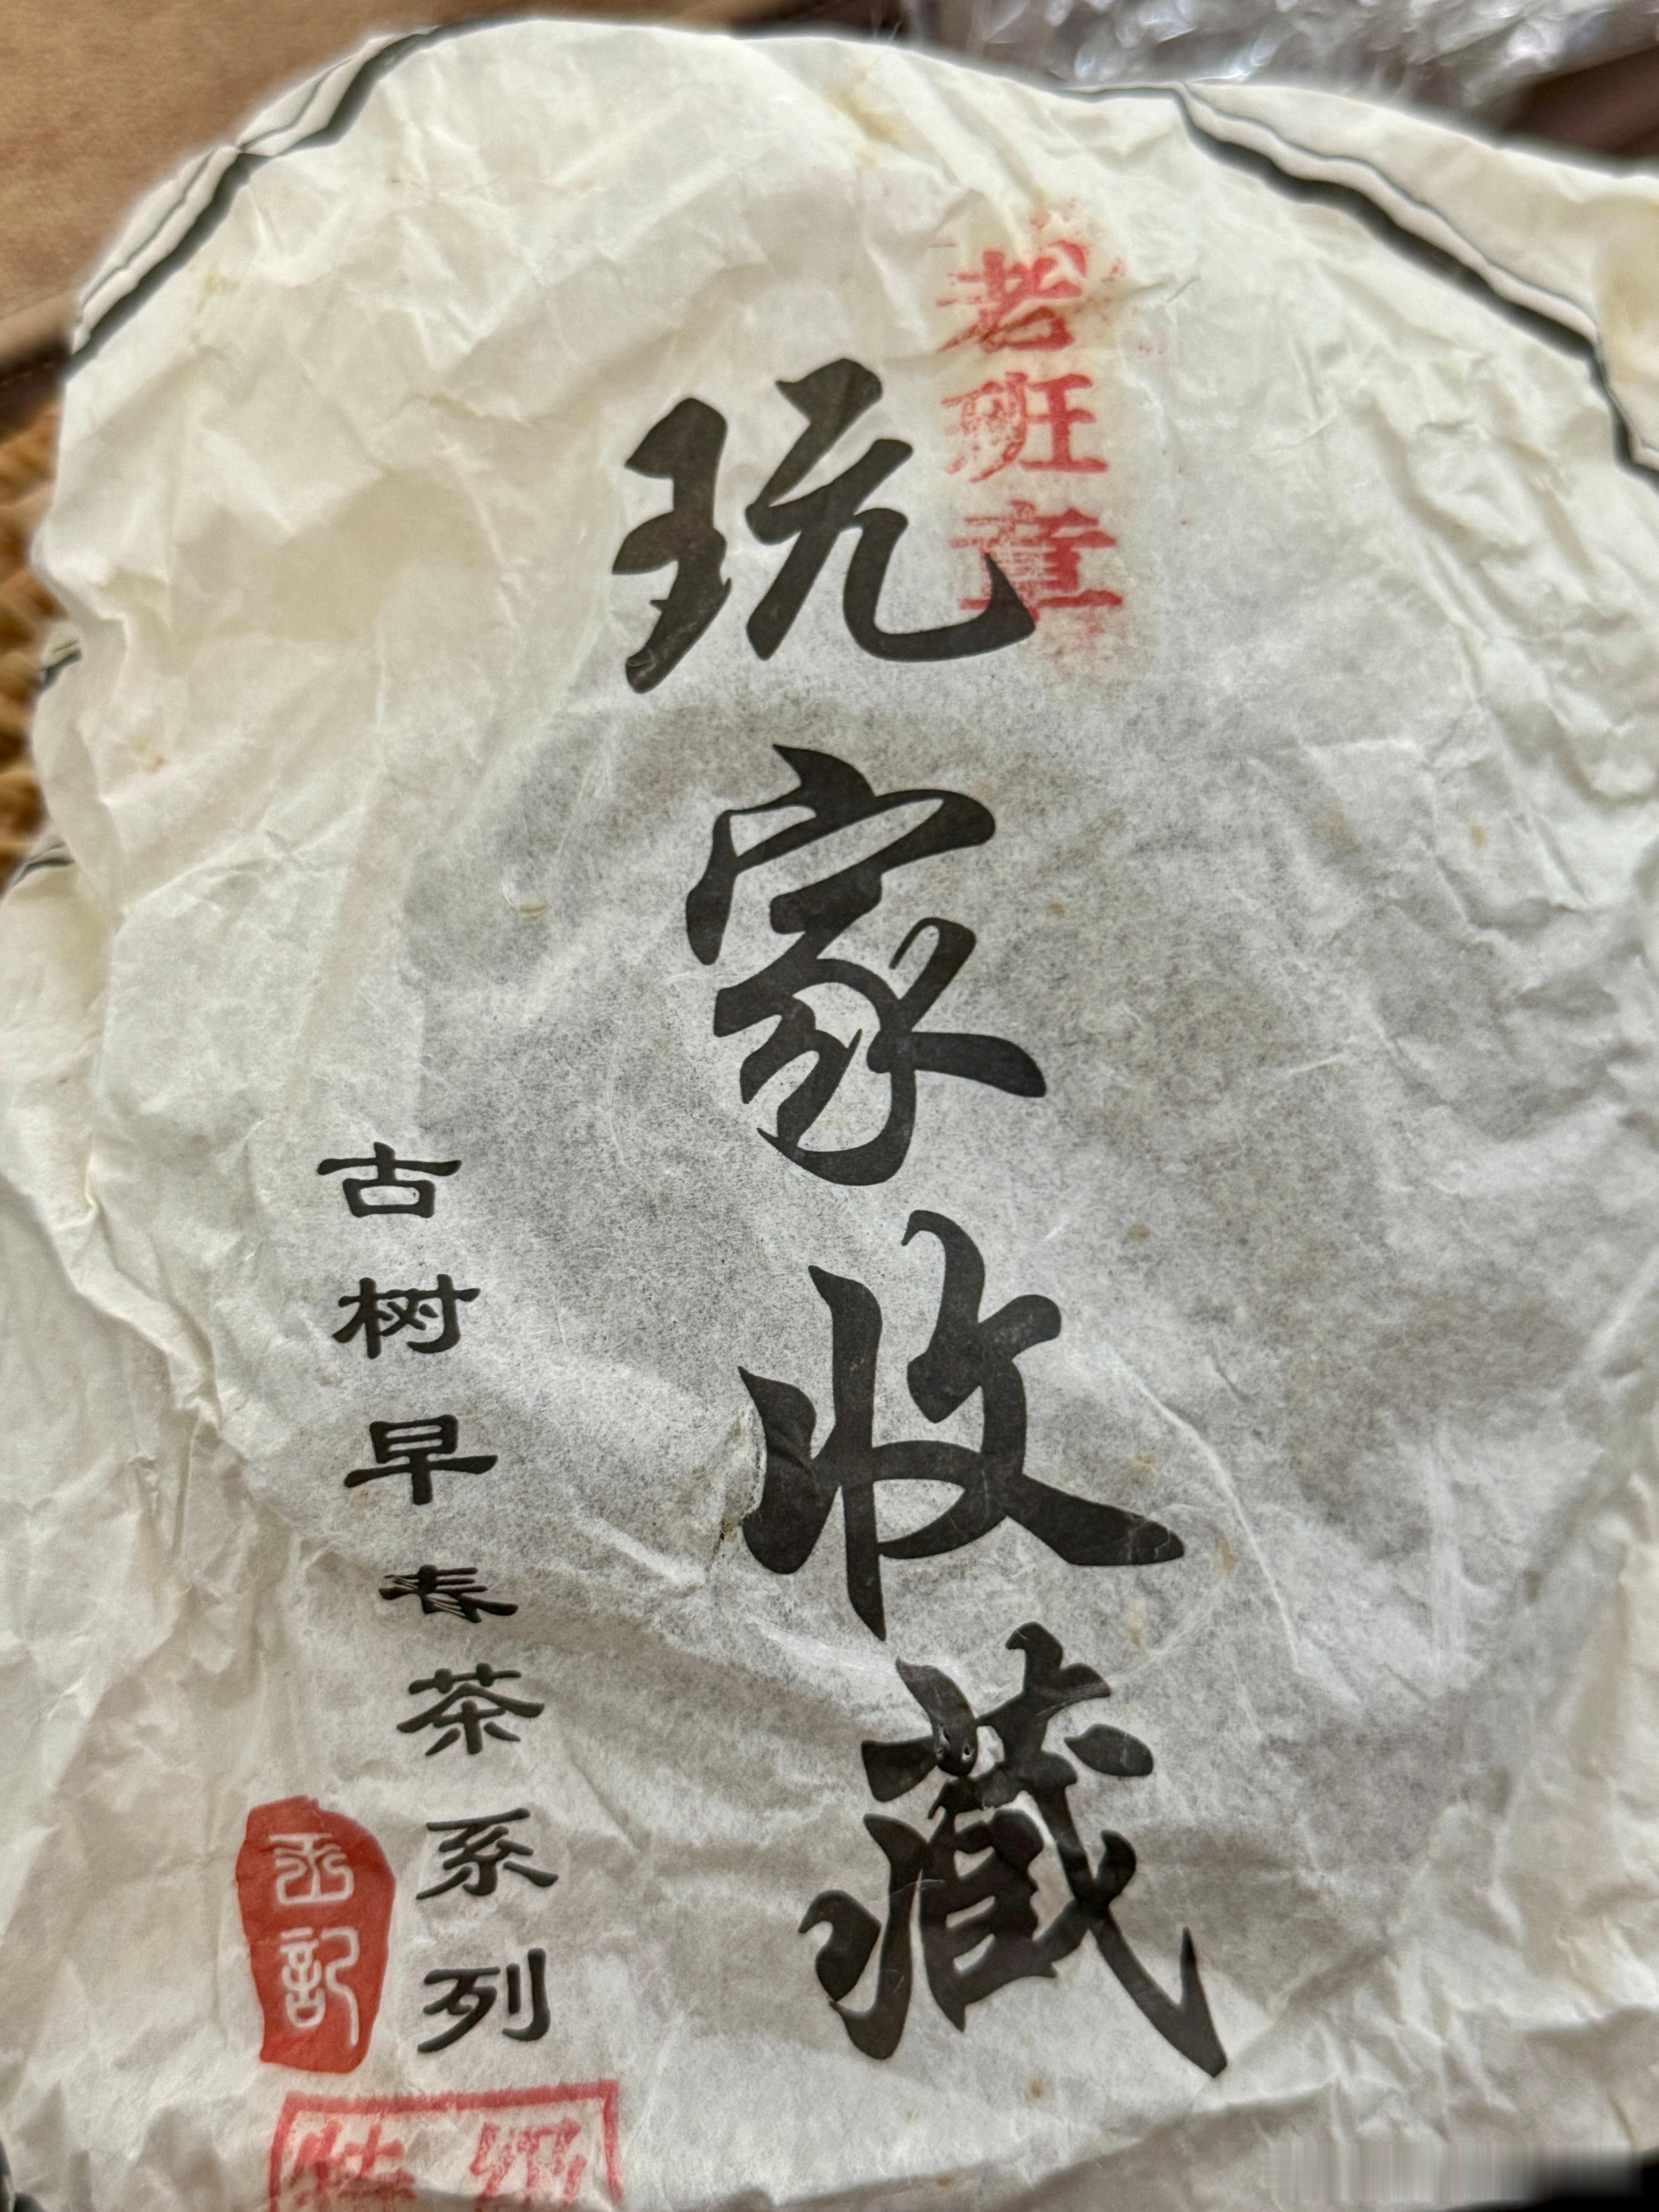 老班章
玩家收藏
古树早春茶系列
記
特级